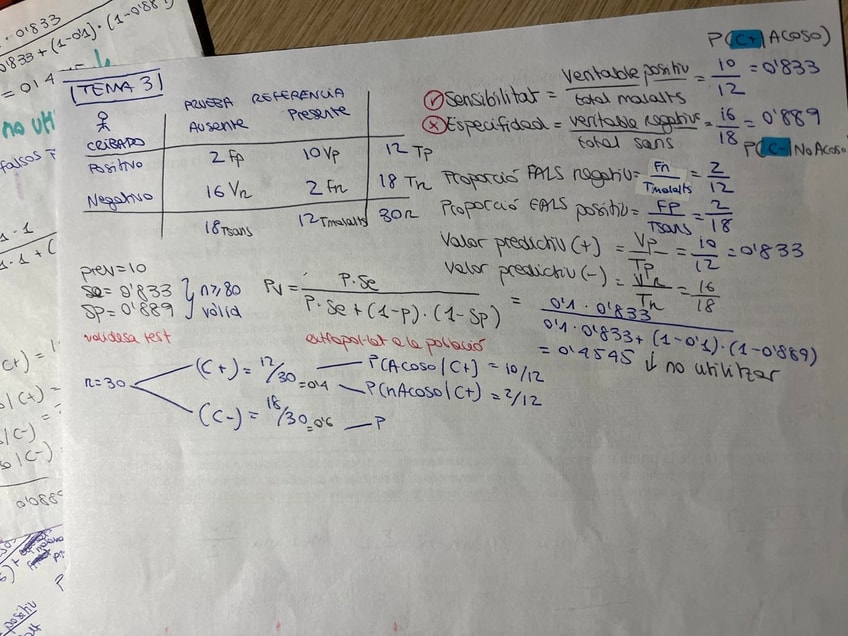 0'833
0'833 + (1-0'1) · (1-0'889)
= 0'4
no uti
falsos
TEMA 3
PRUEBA REFERENCIA
CRIBADO Ausente Presente
Positivo 2 Fp 10 Vp 12 Tp
Negativo 16 Vn 2 Fn 18 Tn
18 Tsans 12 Tmalalts 30 n
P(C+|Acoso)
Sensibilitat = veritable positiu / total malalts = 10/12 = 0'833
Especifidad = veritable negativo / total sans = 16/18 = 0'889
P(C-|NoAcoso
Proporció FALS negatiu = Fn / Tmalalts = 2/12
Proporció FALS positiu = FP / Tsans = 2/18
Valor predictiu (+) = Vp / Tp = 10/12 = 0'833
Valor predictiu (-) = Vn / Tn = 16/18
prev = 10
Se = 0'833
Sp = 0'889
n≥80
válid
validesa test
Pv = P·Se / P·Se + (1-p)·(1-Sp) = 0'1 · 0'833 / 0'1 · 0'833 + (1-0'1) · (1-0'889)
= 0'4545 ↓ no utilitzar
extrapol·lat a la població
n=30
(C+) = 12/30 = 0'4
P(Acoso|C+) = 10/12
P(nAcoso|C+) = 2/12
(C-) = 18/30 = 0'6 — P